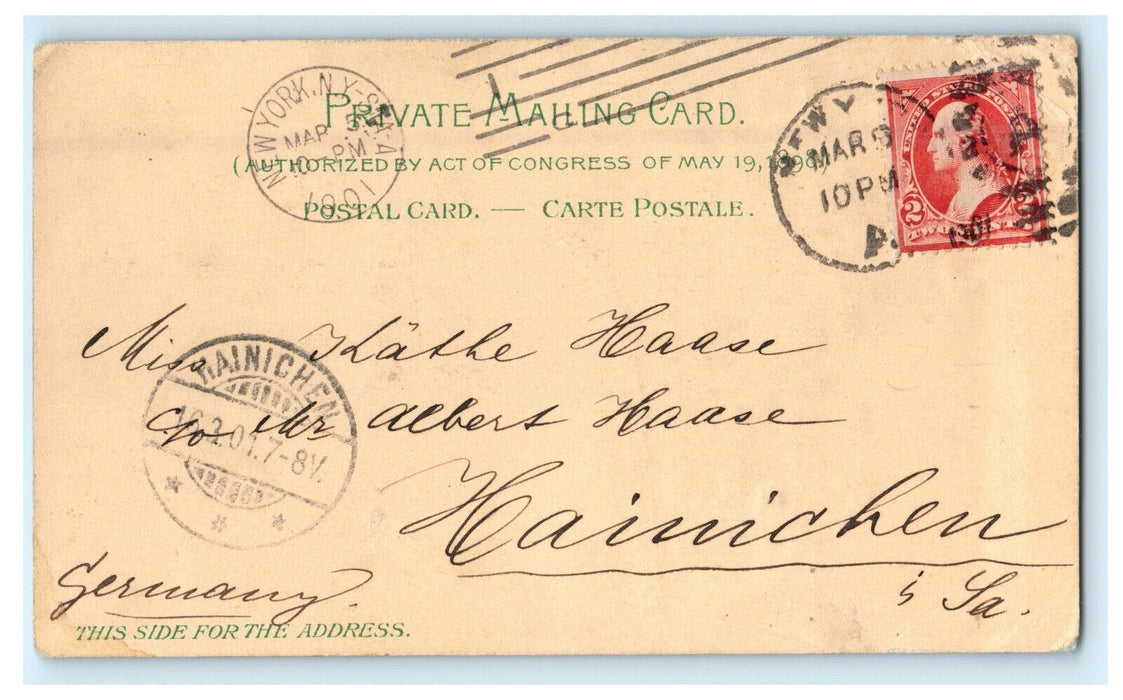 PRIVATE MAILING CARD.
(AUTHORIZED BY ACT OF CONGRESS OF MAY 19, 1898)
POSTAL CARD. — CARTE POSTALE.
NEW YORK, N.Y.-STA.A
MAR 5
PM
1901
MAR
10 PM
A.
1901
UNITED STATES POSTAGE
2 2
TWO CENTS
Miss Käthe Haase
c/o Mr Albert Haase
Hainichen
i Sa.
Germany.
HAINICHEN
16.3.01.7-8V.
THIS SIDE FOR THE ADDRESS.